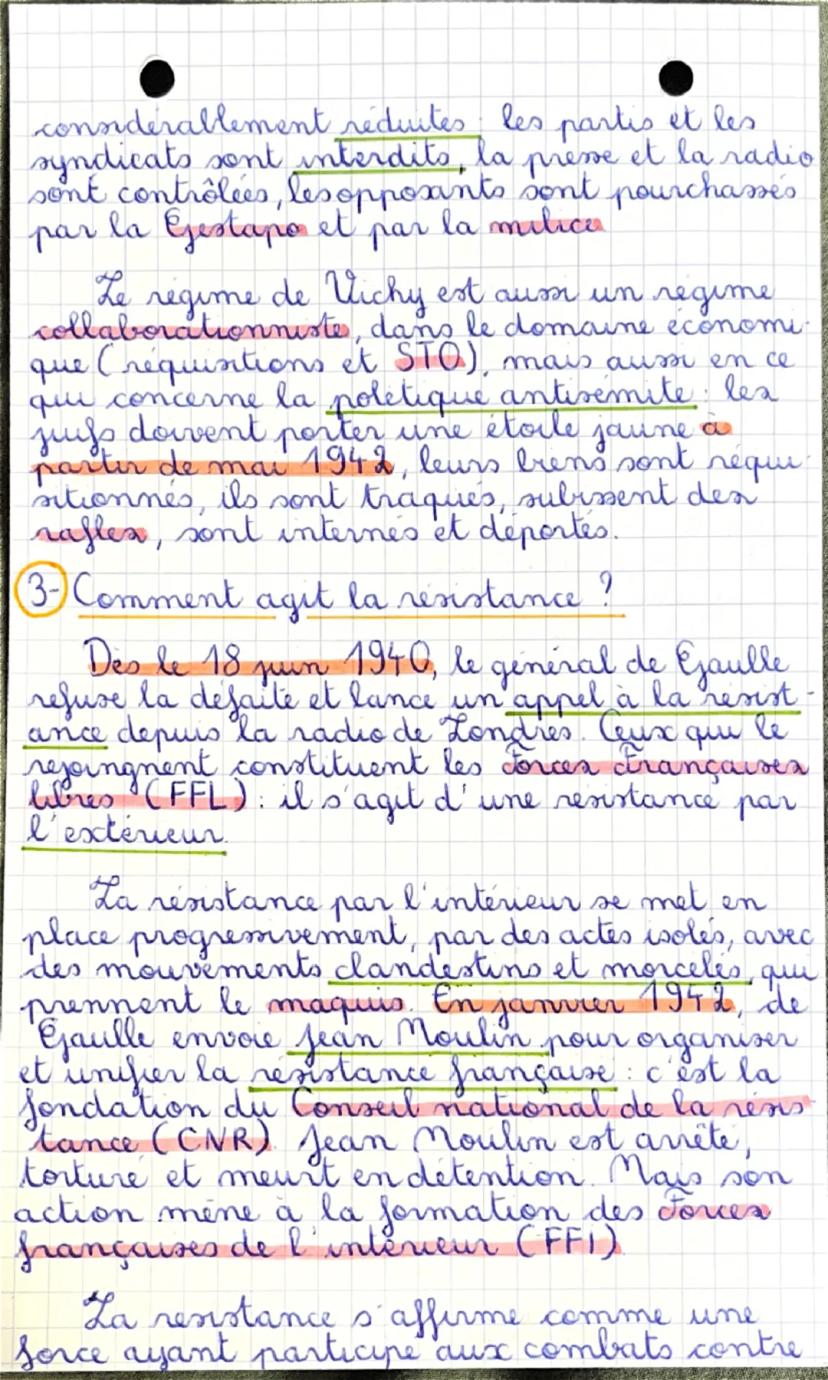 considérablement réduites : les partis et les
syndicats sont interdits, la presse et la radio
sont contrôlées, les opposants sont pourchassés
par la Gestapo et par la milice
Le régime de Vichy est aussi un régime
collaborationniste, dans le domaine économi-
que (réquisitions et STO), mais aussi en ce
qui concerne la politique antisémite : les
juifs doivent porter une étoile jaune à
partir de mai 1942, leurs biens sont réqui-
sitionnés, ils sont traqués, subissent des
rafles, sont internés et déportés.
3- Comment agit la résistance ?
Dès le 18 juin 1940, le général de Gaulle
refuse la défaite et lance un appel à la résist-
ance depuis la radio de Londres. Ceux qui le
rejoingnent constituent les Forces Françaises
libres (FFL) : il s'agit d'une résistance par
l'extérieur.
La résistance par l'intérieur se met en
place progressivement, par des actes isolés, avec
des mouvements clandestins et morcelés, qui
prennent le maquis. En janvier 1942, de
Gaulle envoie Jean Moulin pour organiser
et unifier la résistance française : c'est la
fondation du Conseil national de la résis-
tance (CNR). Jean Moulin est arrêté,
torturé et meurt en détention. Mais son
action mène à la formation des Forces
françaises de l'intérieur (FFI)
La résistance s'affirme comme une
force ayant participé aux combats contre